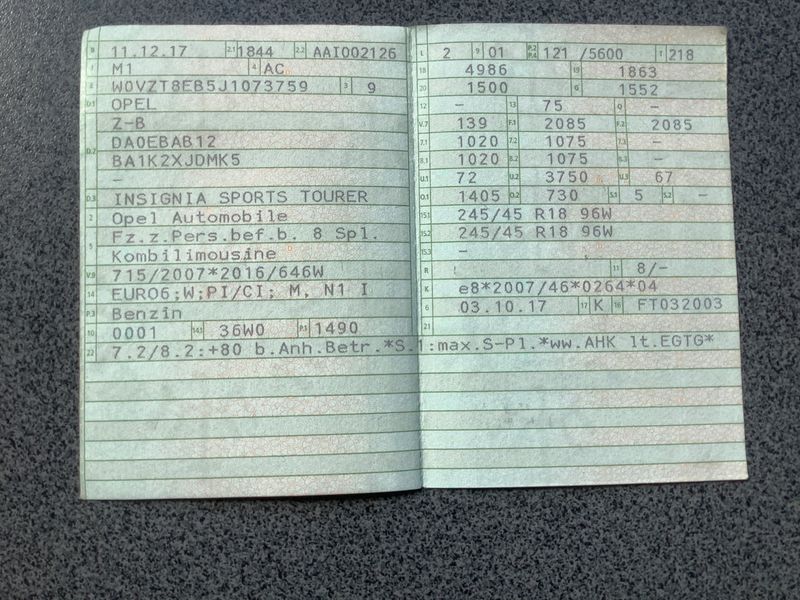 B 11.12.17 2.1 1844 2.2 AAI002126
J M1 4 AC
E W0VZT8EB5J1073759 3 9
D.1 OPEL
Z-B
D.2 DA0EBAB12
BA1K2XJDMK5
–
D.3 INSIGNIA SPORTS TOURER
2 Opel Automobile
Fz.z.Pers.bef.b. 8 Spl.
5 Kombilimousine
V.9 715/2007*2016/646W
14 EURO6;W;PI/CI; M, N1 I
P.3 Benzin
10 0001 14.1 36W0 P.1 1490
22 7.2/8.2:+80 b.Anh.Betr.*S.1:max.S-Pl.*ww.AHK lt.EGTG*
L 2 9 01 P.2 P.4 121 /5600 T 218
18 4986 19 1863
20 1500 G 1552
12 – 13 75 Q –
V.7 139 F.1 2085 F.2 2085
7.1 1020 7.2 1075 7.3 –
8.1 1020 8.2 1075 8.3 –
U.1 72 U.2 3750 U.3 67
O.1 1405 O.2 730 S.1 5 S.2 –
15.1 245/45 R18 96W
15.2 245/45 R18 96W
15.3 –
R 11 8/-
K e8*2007/46*0264*04
6 03.10.17 17 K 16 FT032003
21